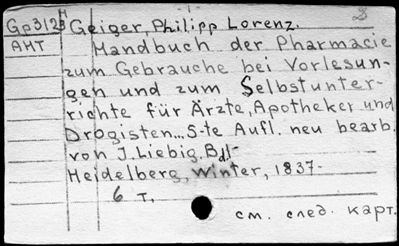 Gp3128 Geiger, Philipp Lorenz.
АНТ Handbuch der Pharmacie
zum Gebrauche bei Vorlesun-
gen und zum Selbstunter-
richte für Ärzte, Apotheker und
Drogisten... 5-te Aufl. neu bearb.
von J. Liebig. Bd I-
Heidelberg, Winter, 1837-
6 т.
см. след. карт.